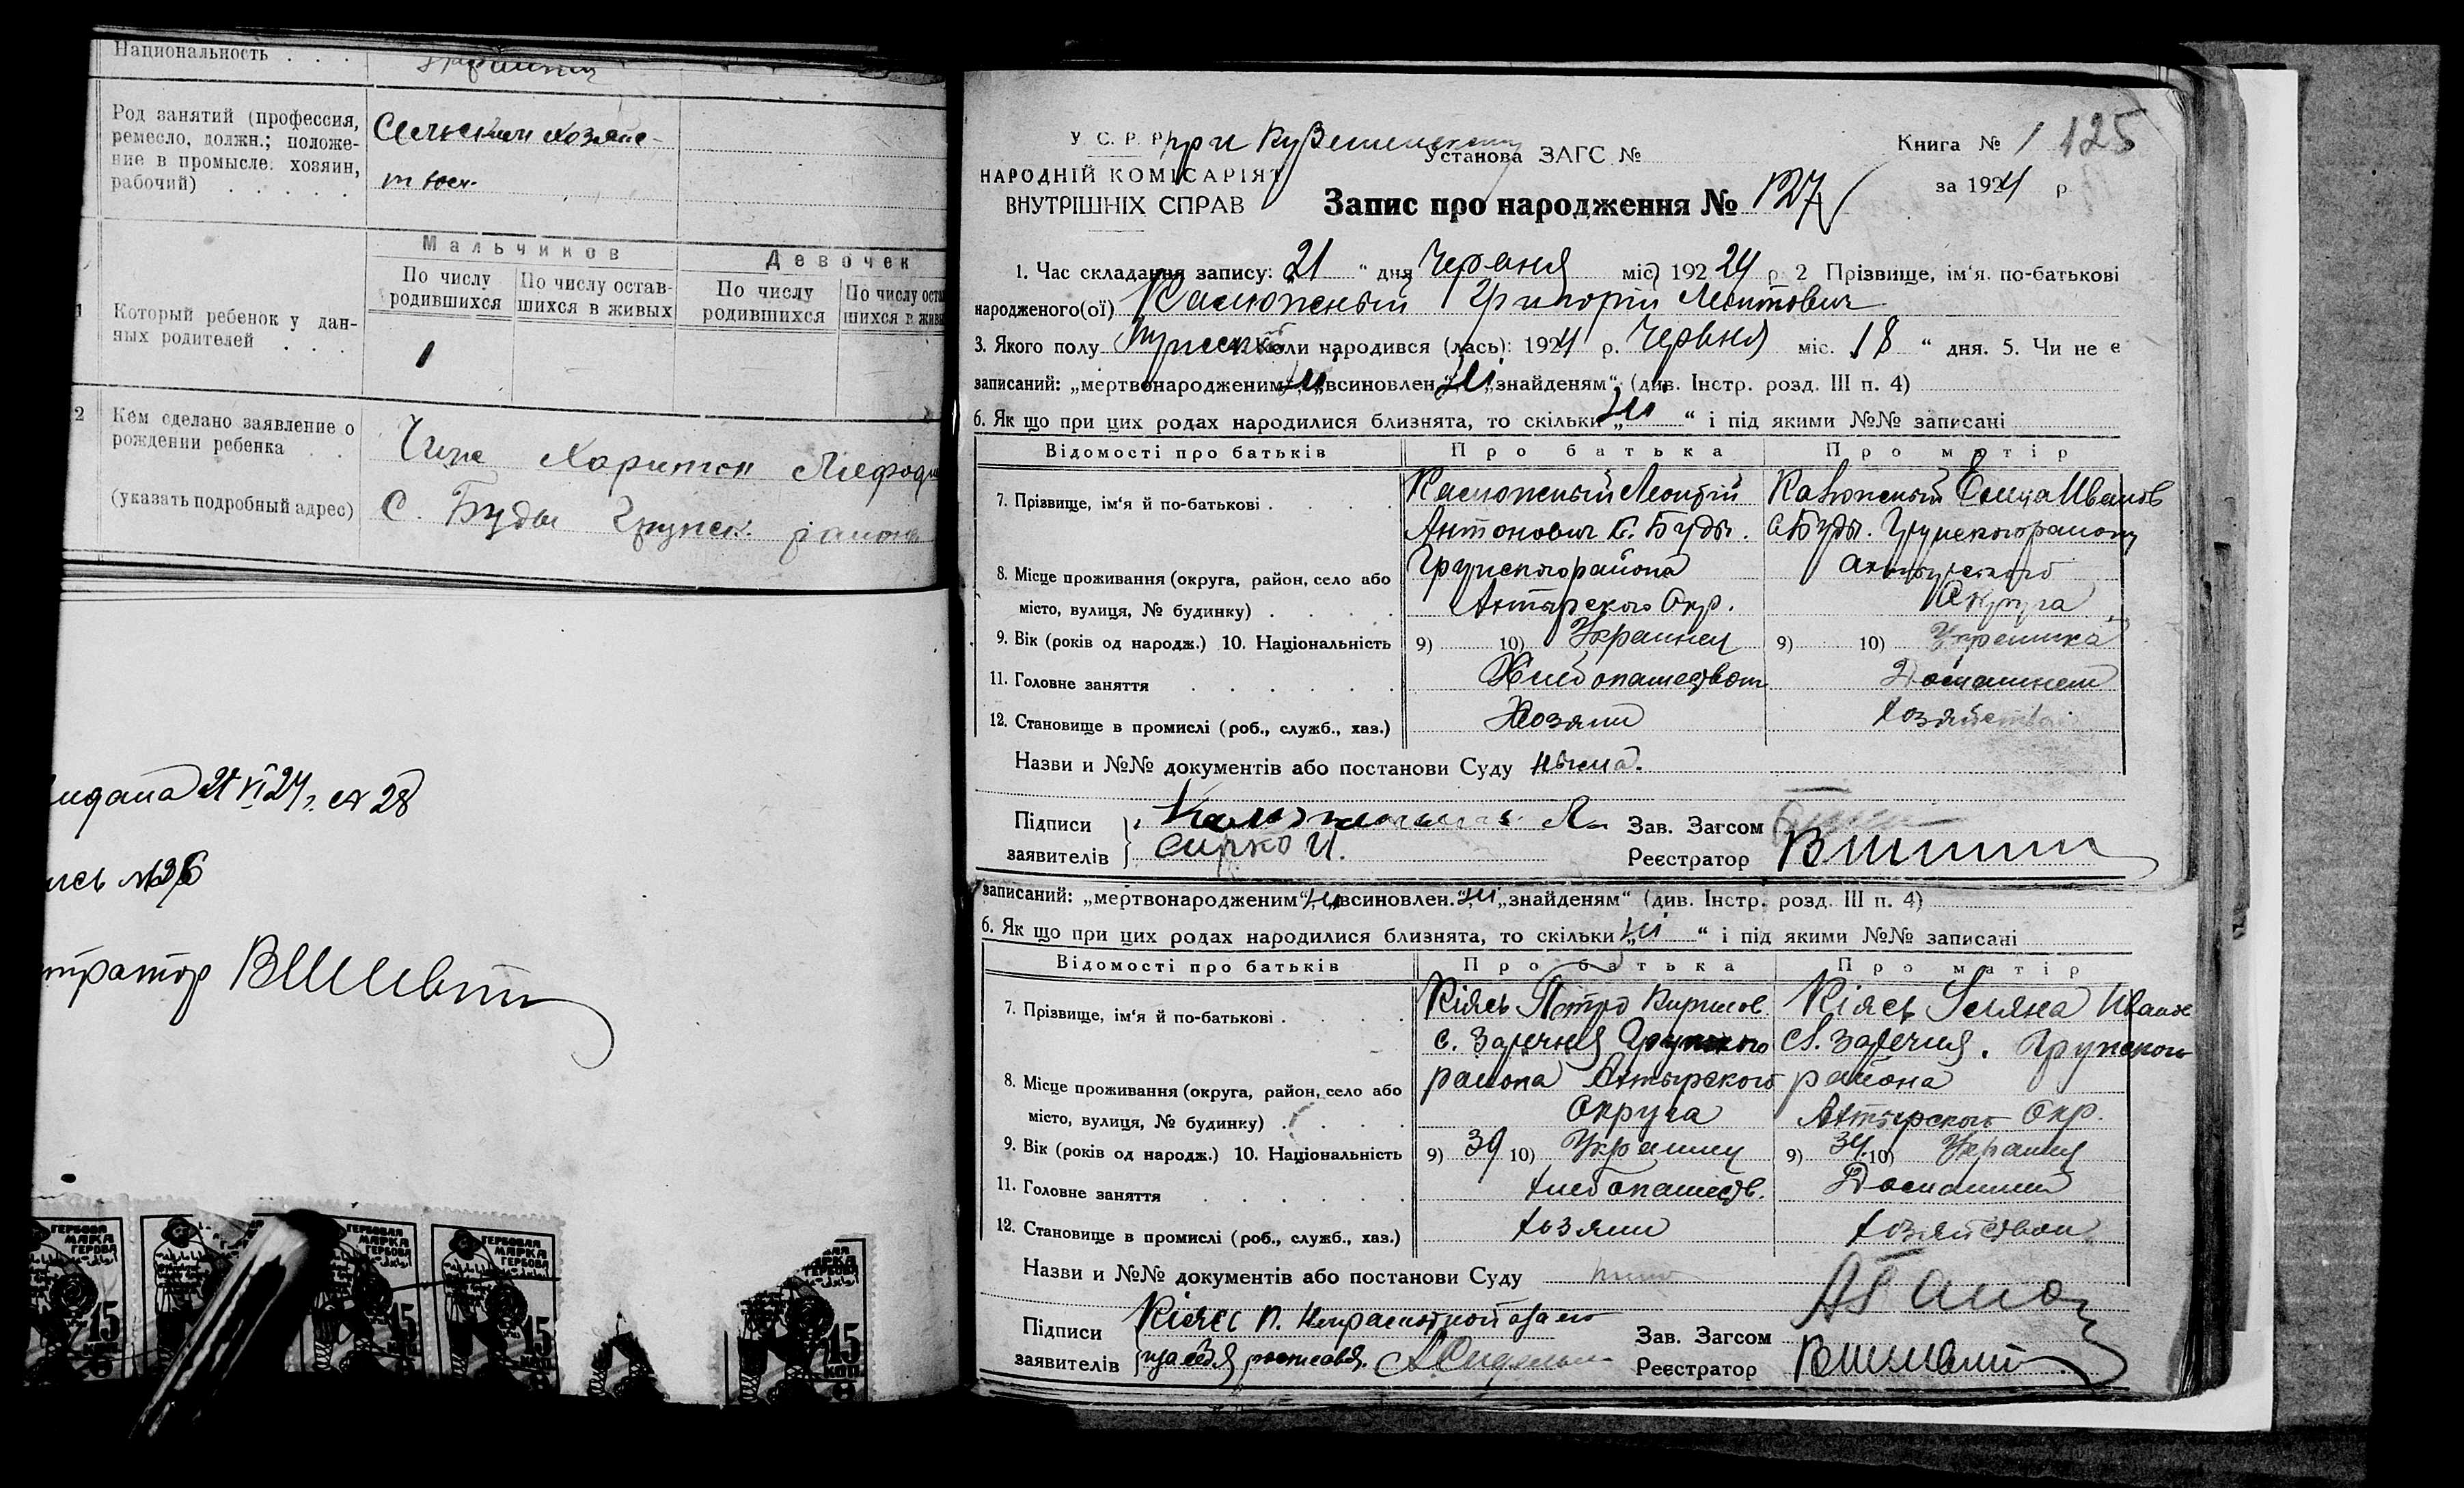 Национальность . . .
Род занятий (профессия,
ремесло, должн.; положе-
ние в промысле: хозяин,
рабочий) . . . . .
Сельским хозяйс-
твом.
Мальчиков
Девочек
По числу родившихся
По числу остав-шихся в живых
По числу родившихся
По числу оста
шихся в жив
1 Который ребенок у дан-
ных родителей . . .
1
2 Кем сделано заявление о
рождении ребенка . .
(указать подробный адрес)
Харитон Мефод
С. Буды Грунск. района
идана 21 VI 24 г. № 28
ись №
тратор
ГЕРБОВАЯ МАРКА ГЕРБОВА
15 КОП.
У. С. Р. Р. при
Установа ЗАГС №
Книга № 1 125
НАРОДНІЙ КОМІСАРІЯТ
ВНУТРІШНІХ СПРАВ
за 1924 р.
Запис про народження № 127
1. Час складання запису: 21 “ дня Червня міс) 192 24 р. 2 Прізвище, ім'я. по-батькові
народженого(ої) Калюжный Григорій Леонтович
3. Якого полу Мужеск Коли народився (лась): 1924 р. Червня міс. 18 “ дня. 5. Чи не є
записаний: „мертвонародженим“ ні „всиновлен.“ ні „знайденям“ (див. Інстр. розд. III п. 4)
6. Як що при цих родах народилися близнята, то скільки „ ні “ і під якими №№ записані
Відомості про батьків
Про батька
Про матір
7. Прізвище, ім'я й по-батькові . . . .
Калюжный Леонтій
Антонович С. Буды.
Калюжный Елица Иванов
С Буды. Грунского району
8. Місце проживання (округа, район, село або
місто, вулиця, № будинку) . . . .
Грунского района
Ахтырского Окр.
Ахтырского
Округа
9. Вік (років од народж.) 10. Національність
9) 10) Украинец
9) 10) Украинка
11. Головне заняття . . . . . .
Хлебопашеством
Домашнем
12. Становище в промислі (роб., служб., хаз.)
Хозяин
хозяйством
Назви и №№ документів або постанови Суду нема.
Підписи
заявителів
Сирко И.
Зав. Загсом
Реєстратор
записаний: „мертвонародженим“ ні „всиновлен.“ ні „знайденям“ (див. Інстр. розд. III п. 4)
6. Як що при цих родах народилися близнята, то скільки „ ні “ і під якими №№ записані
Відомості про батьків
Про батька
Про матір
7. Прізвище, ім'я й по-батькові . . . .
Кіясь Петро Кирилов.
с. Заречня Грунского
Кіясь Уляна Иванов
С. Заречня. Грунского
8. Місце проживання (округа, район, село або
місто, вулиця, № будинку) . . . .
района Ахтырского
Округа
района
Ахтырского Окр.
9. Вік (років од народж.) 10. Національність
9) 39 10) Украинец
9) 34 10) Украинц
11. Головне заняття . . . . . .
хлебопашеств.
Домашнем
12. Становище в промислі (роб., служб., хаз.)
хозяин
хозяйством
Назви и №№ документів або постанови Суду
Підписи
заявителів
Кіясь П. Неграмотной а за его
росписався.
Зав. Загсом
Реєстратор